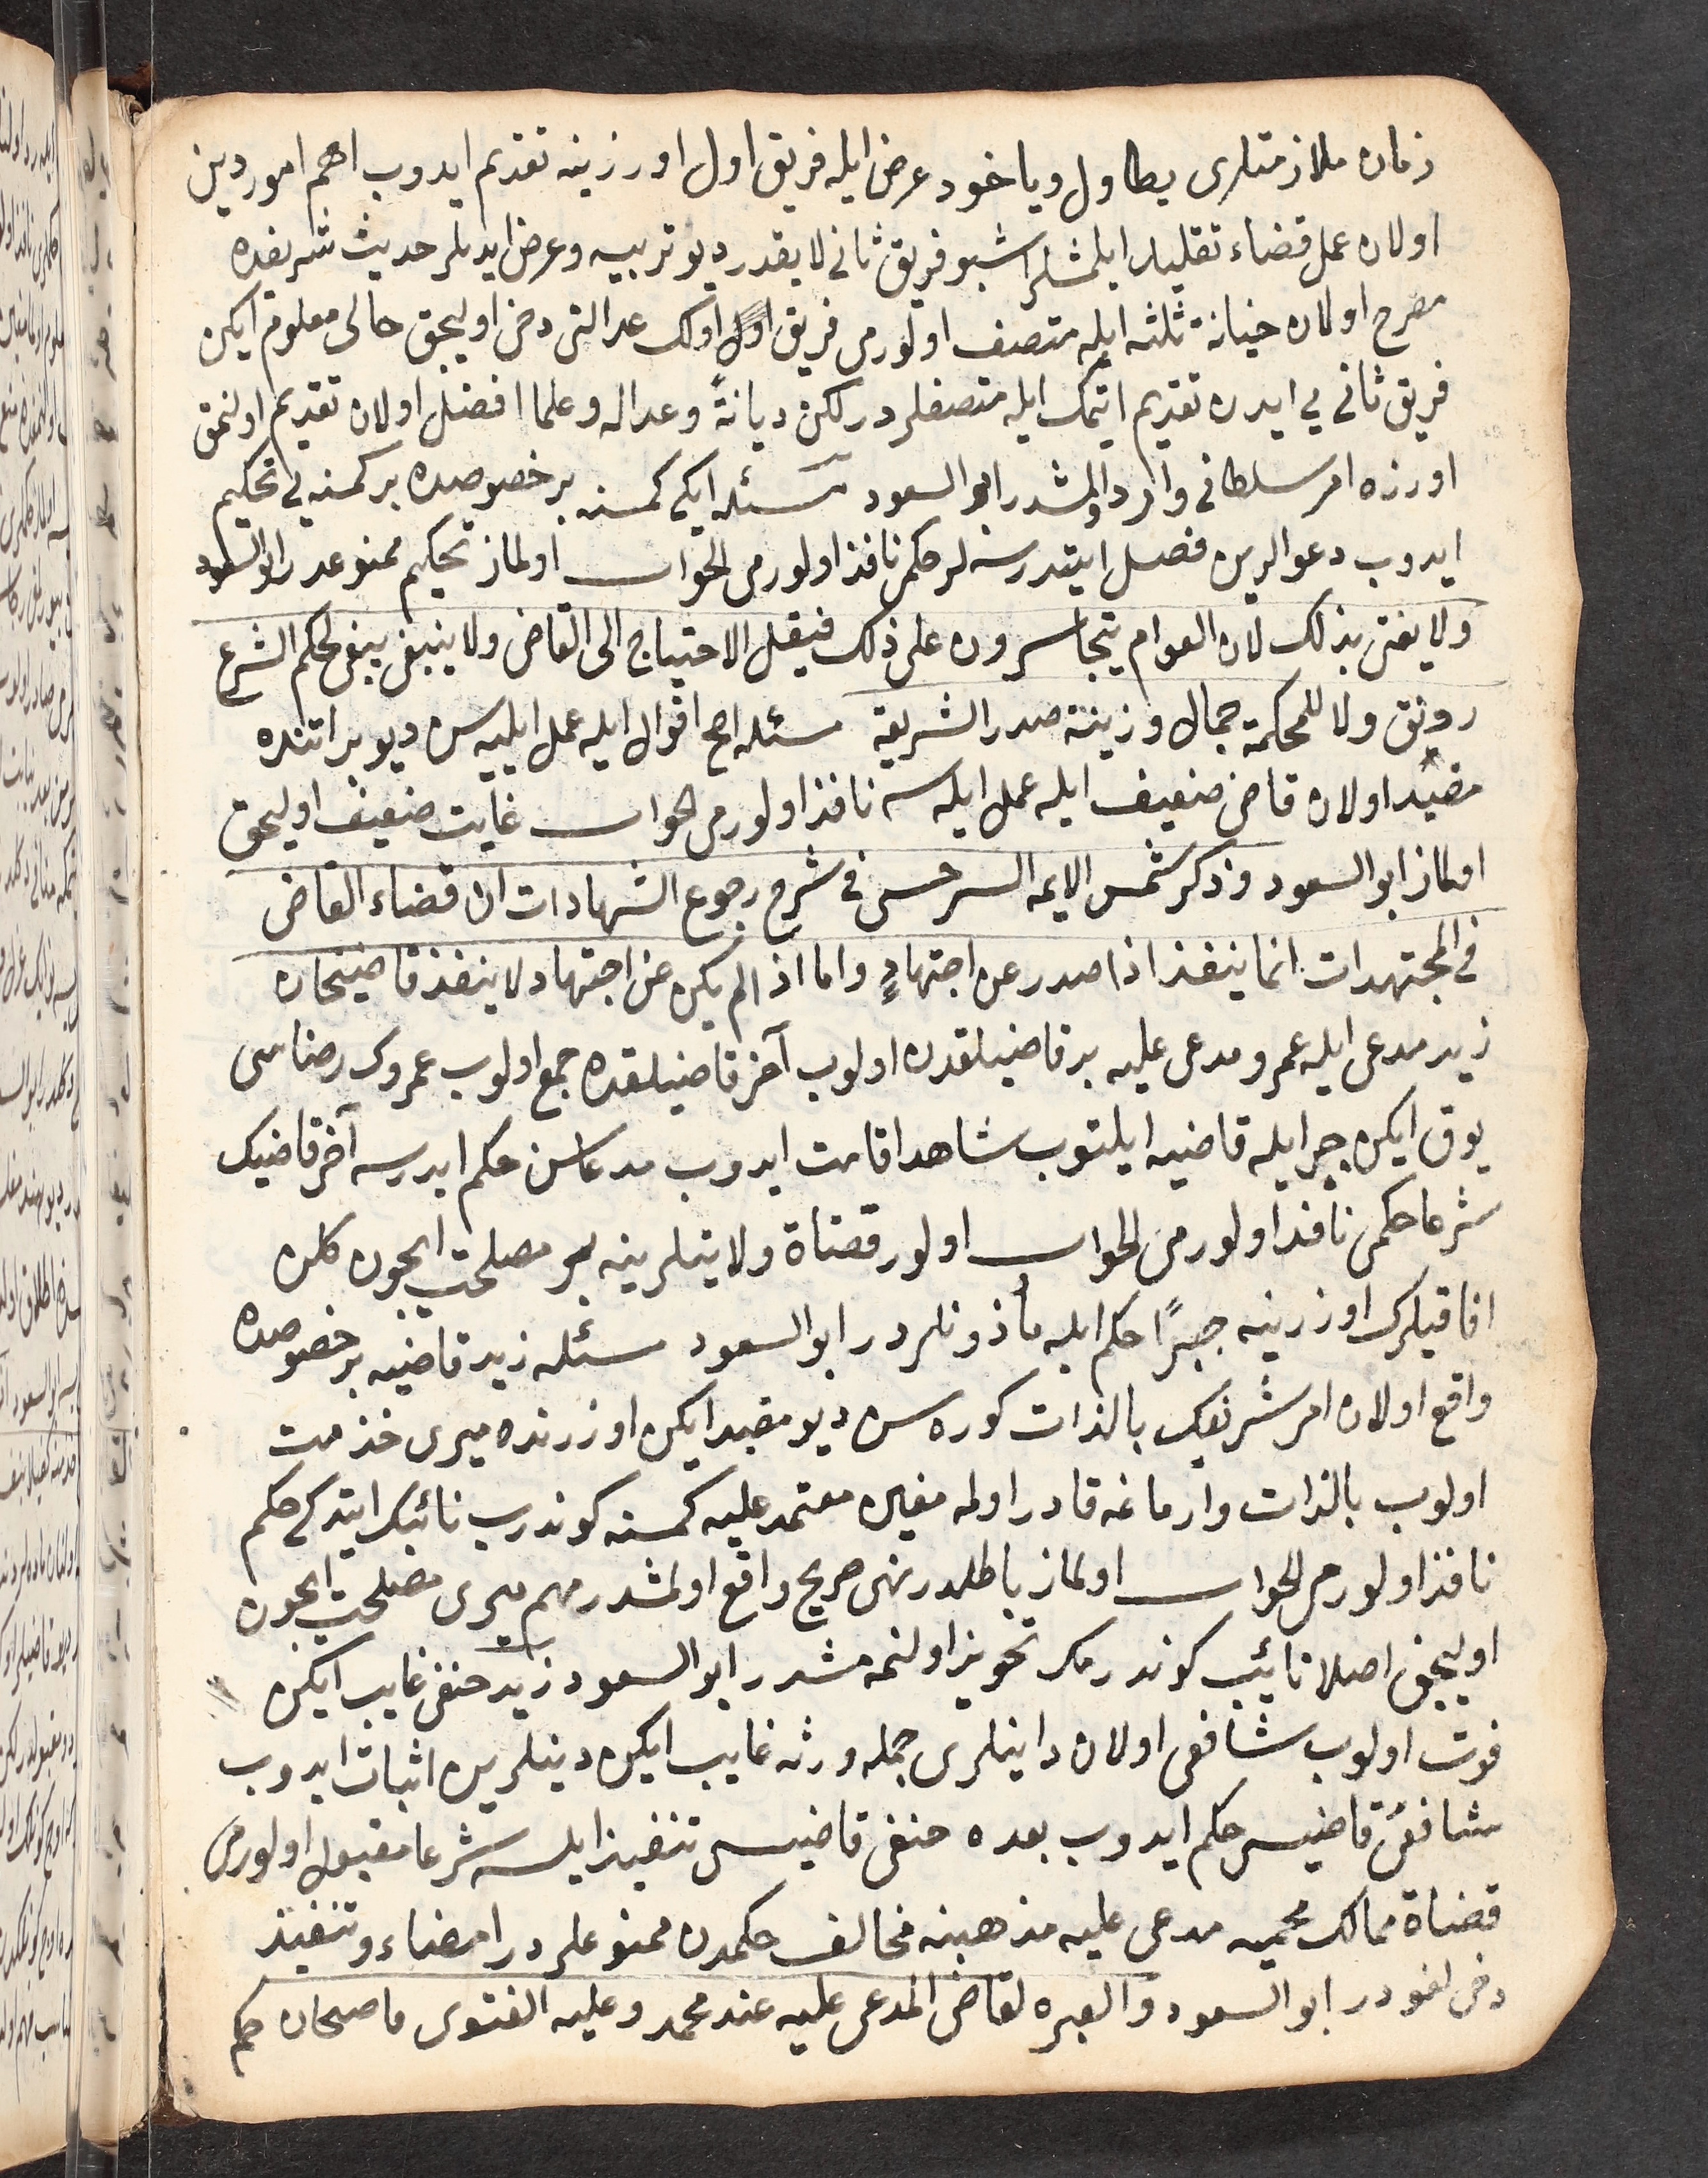 زمان ملازمتلری یطاول ویاخود عرض ایله فریق اول اورزینه تقدیم ایدوب اهم امور دین
اولان عمل قضاء تقلید ایلمشلر اشبو فریق ثانی لایقدر دیو تربیه وعرض ایدیلر حدیث شریفده
مصرح اولان خیانة ثلثه ایله متصف اولورمی فریق اولك عدالتی دخی اولیجق حالی معلوم ایکن
فریق ثانی یی ایدن تقدیم ایتمك ایله متصفلردر لکن دیانةً وعداله وعلما افضل اولان تقدیم اولنمق
اورزه امر سلطانی وارد اولمشدر ابو السعود مسئله ایکی کمسنه بر خصوصده بر کمسنه یی تحکیم
ایدوب دعوالرین فصل ایتدرسه لر حکمی نافذ اولورمی الجواب اولماز تحکیم ممنوعدر ابو السعود
ولا یفتی بذلك لان العوام یتجاسرون علی ذلك فیقل الاحتیاج الی القاضی ولا ینبغی یبقی لحکم الشرع
رونق ولا للمحکمة جمال وزینة صدر الشریعة مسئله اصح اقوال ایله عمل ایلیه سن دیو براتنده
مقید اولان قاضی ضعیف ایله عمل ایلسه نافذ اولورمی الجواب غایت ضعیف اولیجق
اولماز ابو السعود وذکر شمس الایمه السرخسی فی شرح رجوع الشهادات ان قضاء القاضی
فی المجتهدات انما ینفذ اذا صدر عن اجتهادٍ واما اذا لم یکن عن اجتهاد لا ینفذ قاضیخان
زید مدعی ایله عمرو مدعی علیه بر قاضیلقدن اولوب آخر قاضیلقده جمع اولوب عمروك رضاسی
یوق ایکن جبر ایله قاضیه ایلتوب شاهد اقامت ایدوب مدعاسن حکم ایدرسه آخر قاضینك
شرعا حکمی نافذ اولورمی الجواب اولور قضاة ولایتلرینه بر مصلحت ایچون کلن
افاقیلرك اوزرینه جبرًا حکم ایله مأذونلردر ابو السعود مسئله زید قاضیه بر خصوصده
واقع اولان امر شریفك بالذات کوره سن دیو مقید ایکن اوزرنده میری خذمت
اولوب بالذات وارماغه قادر اولمه مغین معتمد علیه کمسنه کوندرب نائبك ایتدکی حکم
نافذ اولورمی الجواب اولماز باطلدر نهی صریح واقع اولمشدر مهم میری مصلحت ایچون
اولیجق اصلا نایب کوندرمك تجویز اولنمه مشدر ابو السعود زید حنفی غایب ایکن
فوت اولوب شافعی اولان داینلری جمله ورثه غایب ایکن دینلرین اثبات ایدوب
شافعی قاضیسی حکم ایدوب بعده حنفی قاضیسی تنفیذ ایلسه شرعا مقبول اولورمی
قضاة ممالك محمیه مدعی علیه مذهبنه مخالف حکمدن ممنوعلردر امضاء وتنفیذ
دخی لغودر ابو السعود والعبره لقاضی المدعی علیه عند محمد وعلیه الفتوی حکم